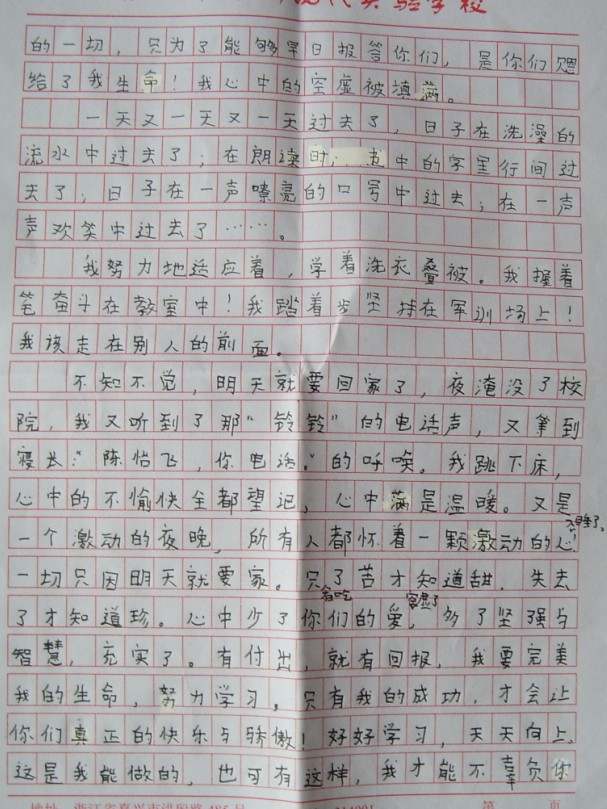 现代实验学校
的一切，只为了能够早日报答你们，是你们恩
给了我生命！我心中的空虚被填满。
一天又一天又一天过去了，日子在洗澡的
流水中过去了；在朗读时，书中的字里行间过
去了，日子在一声嘹亮的口号中过去；在一声
声欢笑中过去了……。
我努力地适应着，学着洗衣叠被。我握着
笔奋斗在教室中！我踏着步坚持在军训场上！
我该走在别人的前面。
不知不觉，明天就要回家了，夜淹没了校
院，我又听到了那“铃铃”的电话声，又等到
寝长“陈怡飞，你电话。”的呼唤。我跳下床，
心中的不愉快全都望记，心中满是温暖。又是
一个激动的夜晚，所有人都怀着一颗激动的心入睡了。
一切只因明天就要家。只了苦才知道甜，失去
有吃
了才知道珍。心中少了你们的爱，多了坚强与
智慧，充实了。有付出，就有回报，我要完美
我的生命，努力学习，只有我的成功，才会让
你们真正的快乐与骄傲！好好学习，天天向上，
这是我能做的，也可有这样，我才能不辜负你
地址 浙江省嘉兴市洪殷路485号 314001 第 页